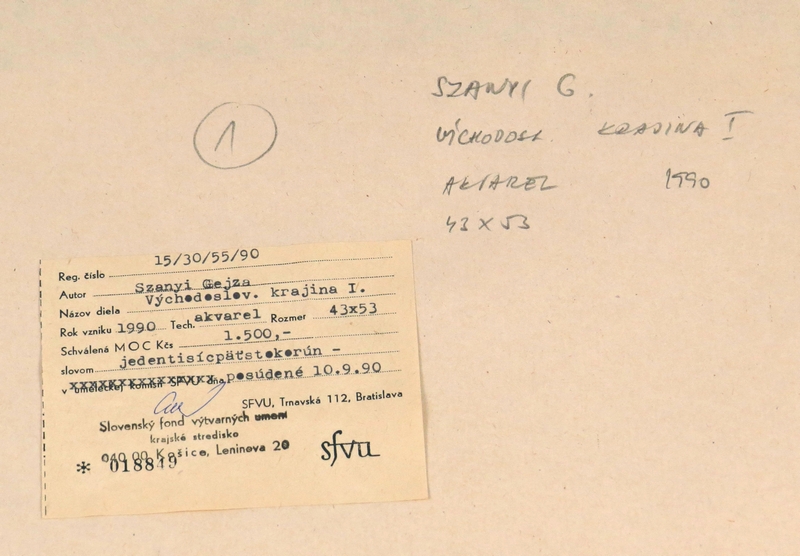 SZANYI G.
1
VÍCHODOSL. KRAJINA I
AKVAREL 1990
43 x 53
Reg. číslo 15/30/55/90
Autor Szanyi Gejza
Názov diela Východoslov. krajina I.
Rok vzniku 1990 Tech. akvarel Rozmer 43x53
Schválená MOC Kčs 1.500,-
slovom jedentisícpäťstokorún -
v umeleckej komisii SFVU dňa posúdené 10.9.90
SFVU, Trnavská 112, Bratislava
Slovenský fond výtvarných umení
krajské stredisko
040 00 Košice, Leninova 20
* 018849
sfvu